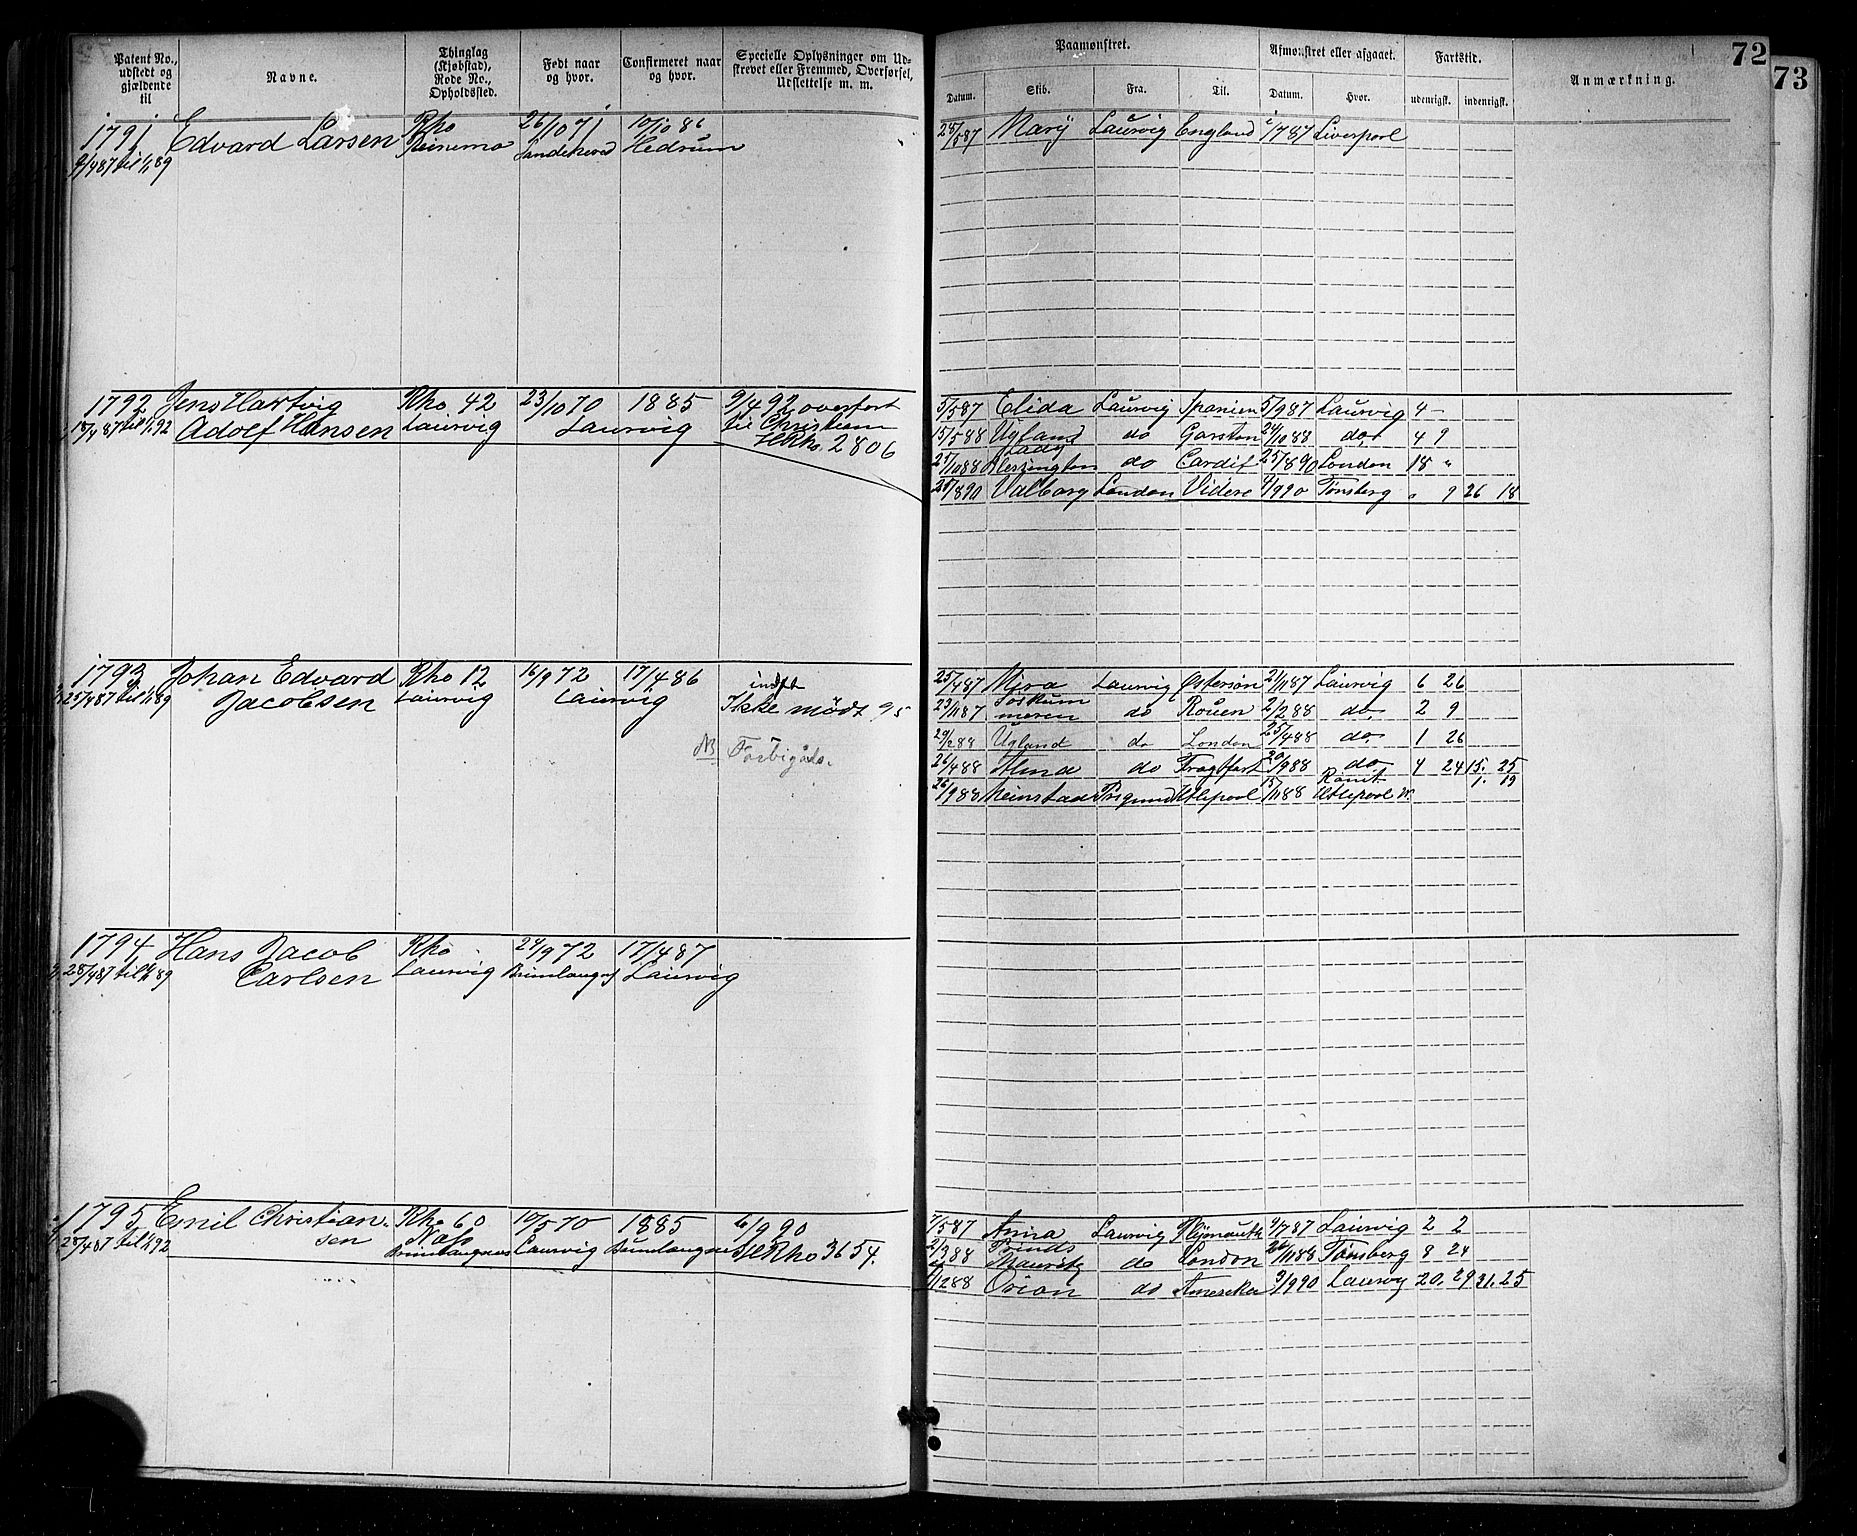 Patent No., udstedt og gjældende til
Navne.
Thinglag (Kjøbstad), Rode No., Opholdssted.
Født naar og hvor.
Confirmeret naar og hvor.
Specielle Oplysninger om Udskrevet eller Fremmed, Overførsel, Udslettelse m. m.
Paamønstret.
Afmønstret eller afgaaet.
Fartstid.
Anmærkning.
72
73
Datum. Skib. Fra. Til. Datum. Hvor. udenrigsk. indenrigsk.
1791 Edvard Larsen Rho 26/10 71 10/10 86
9/4 87 til 1/1 89 Sandeherred Hedrum
28/5 87 Mary Laurvig England /7 87 Liverpool
1792 Jens Hartvig Rho 42 23/10 70 1885 9/4 92 overført
18/4 87 til 1/1 92 Adolf Hansen Laurvig Laurvig til Christiania
Hrho. 2806
5/5 87 Elida Laurvig Spanien 5/9 87 Laurvig 4 –
15/5 88 Ugland do Garston 24/10 88 do. 4 9
Lady
/10 88 Blessington do Cardif 25/8 90 London 18 "
28/8 90 Valborg London Videre /9 90 Tønsberg " 9 26 18
1793 Johan Edvard Rho 12 16/9 72 17/4 86
25/4 87 til 1/1 89 Jacobsen Laurvig Laurvig Ikke mødt 95
NB Forbigåes.
25/4 87 Laurvig Østersøn 21/11 87 Laurvig 6 26
23/11 87 do Rouen 2/2 88 do. 2 9
29/2 88 Ugland do London 25/4 88 do. 1 26
26/4 88 Alma do Fragtfart 20/9 88 do 4 24 15. 25
Rømt 1. 13
26/9 88 /11 88
1794 Hans Jacob Rho 24/9 72 17/4 87
28/4 87 til 1/1 89 Carlsen Laurvig Brunlangnæs Laurvig
1795 Emil Christian- Rho 60 19/5 70 1885 6/9 90
28/4 87 til 1/1 92 sen Næs
Brunlangnæs Laurvig Brunlangnæs SeRho 3654.
7/5 87 Anna Laurvig Plymouth 9/7 87 Laurvig 2 2
Trends
/3 88 Mauritz do London /11 88 Tønsberg 8 24
/12 88 Orion do Amerika 3/9 90 Laurvig 20. 29. 31. 25